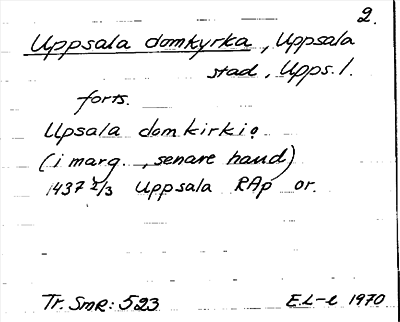 2.
Uppsala domkyrka, Uppsala
stad, Upps. l.
forts.
Upsala domkirkio
(i marg., senare hand)
1437 2/3 Uppsala RAp or.
Tr. SMR: 523 E.L-e 1970